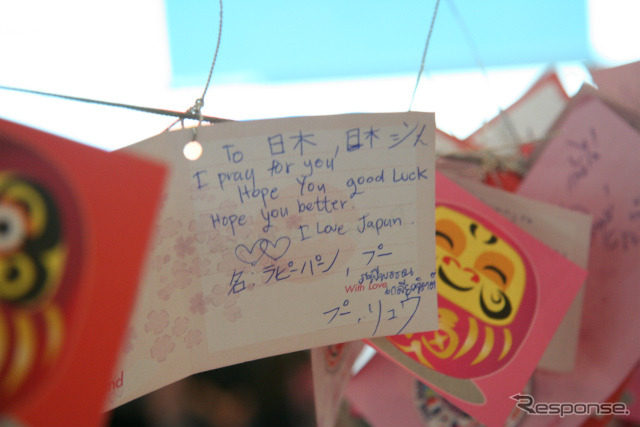 To 日木 日木 ジん
I pray for you,
Hope You good Luck
Hope you better
I Love Japun.
名: ラピーパン, プー
With Love
プ,リュウ
nd
Response.